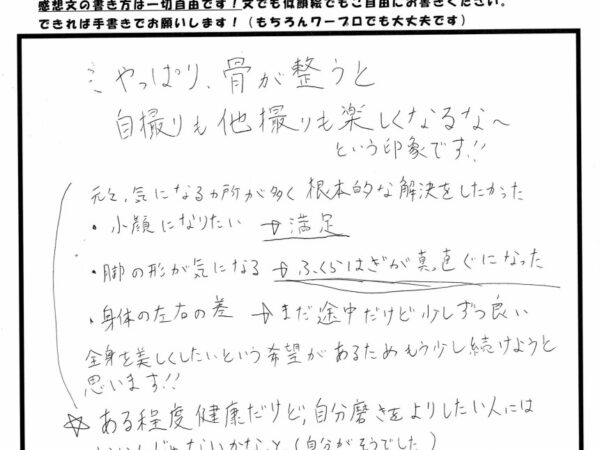 感想文の書き方は一切自由です！文でも似顔絵でもご自由にお書きください。
できれば手書きでお願いします！（もちろんワープロでも大丈夫です）
やっぱり、骨が整うと
自撮りも他撮りも楽しくなるな〜
という印象です!!
元々、気になるか所が多く根本的な解決をしたかった
・小顔になりたい → 満足
・脚の形が気になる → ふくらはぎが真っ直ぐになった
・身体の左右の差 → まだ途中だけど少しずつ良い
全身を美しくしたいという希望があるためもう少し続けようと
思います!!
☆ ある程度健康だけど、自分磨きをよりしたい人には
いいんじゃないかなと（自分がそうでした）